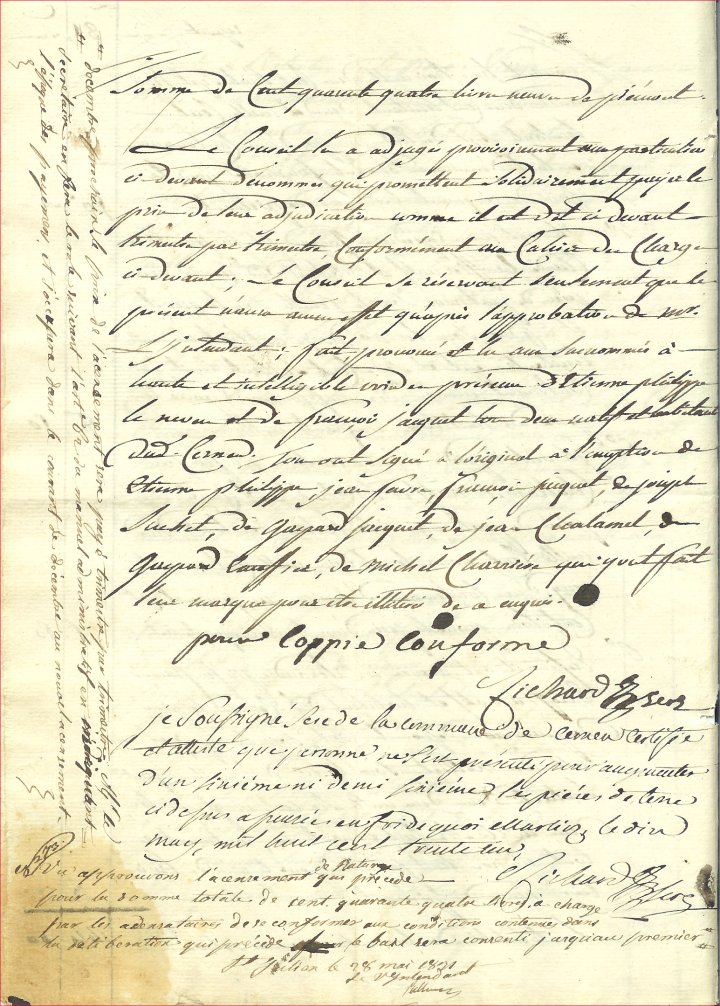 Somme de Cent quarante quatre livres neuves de piémont.
Le Conseil l'a adjugés provisoirement aux particuliers
ci devant dénommés qui promettent solidairement payer le
prix de leur adjudication comme il est dit ci devant
trimestre par trimestre Conformément au Cahier des Charges
ci devant ; Le Conseil se réservant seulement que le
présent n'aura aucun effet qu'après l'approbation de mr.
L'intendant ; fait, prononcé et lu aux susnommés à
haute et intelligible voix en présence d'Etienne philippe
le neveu et de françois jacquet tous deux natifs et habitants
dud. Cernex. Tous ont signé à l'original à l'exception de
Etienne philippe, jean favre, françois jacquet, de joseph
Suchet, de Gaspard jacquet, de jean Chalamel, de
Gaspard, de michel Charrière qui y ont fait
leur marque pour être illitérés de ce enquis.
pour Coppie Conforme
Richard
je Soussigné de la commune de cernex certifie
et atteste que personne ne s'est présenté pour augmenter
d'un sixième ni demi sixième les pièces de terre
ci dessus en foi de quoi Cernex, le dix
may, mil huit cent trente un
Richard
Vu approuvons l'acensement de Nature qui précède
pour la somme totale de cent quarante quatre livres, à charge
par les acensataires de se conformer aux conditions contenues dans
la délibération qui précède le bail sera consenti jusqu'au premier
St Julien le 28 mai 1831
Le Vintendant
décembre prochain, le prix de l'acensement sera payé à trimestre par trimestre à Mr le
Secrétaire en suivant l'art. du manuel administratif en indiquant
l'époque des payemens, et l'on dans le courant de décembre au nouvel acensement.